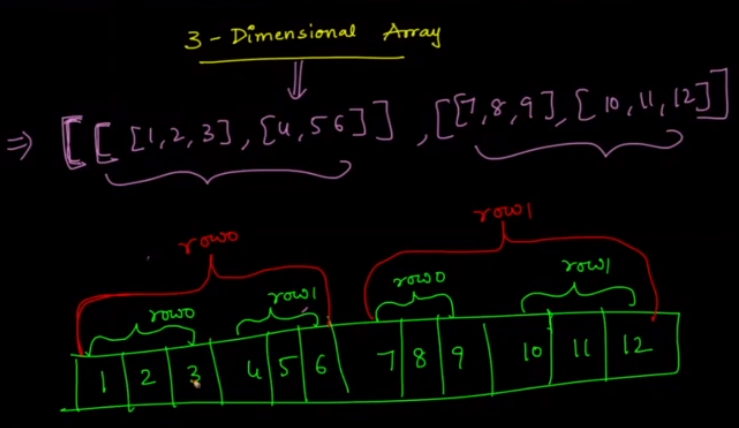 3 - Dimensional Array
⇒ [[[1,2,3],[4,56]],[[7,8,9],[10,11,12]]
row0 row1
row0 row1 row0 row1
1 2 3 4 5 6 7 8 9 10 11 12